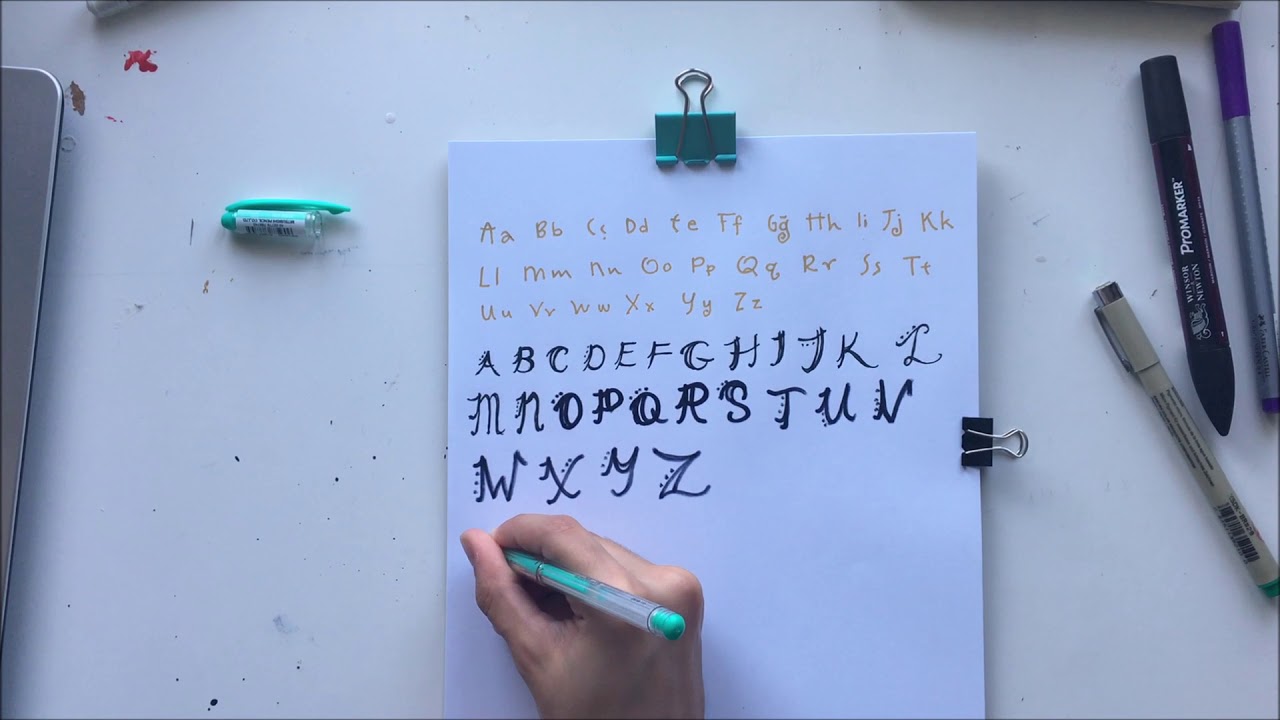 Aa Bb Cc Dd Ee Ff Gg Hh Ii Jj Kk
Ll Mm Nn Oo Pp Qq Rr Ss Tt
Uu Vv Ww Xx Yy Zz
A B C D E F G H I J K L
M N O P Q R S T U V
W X Y Z
PROMARKER
WINSOR & NEWTON
MITSUBISHI PENCIL CO., LTD